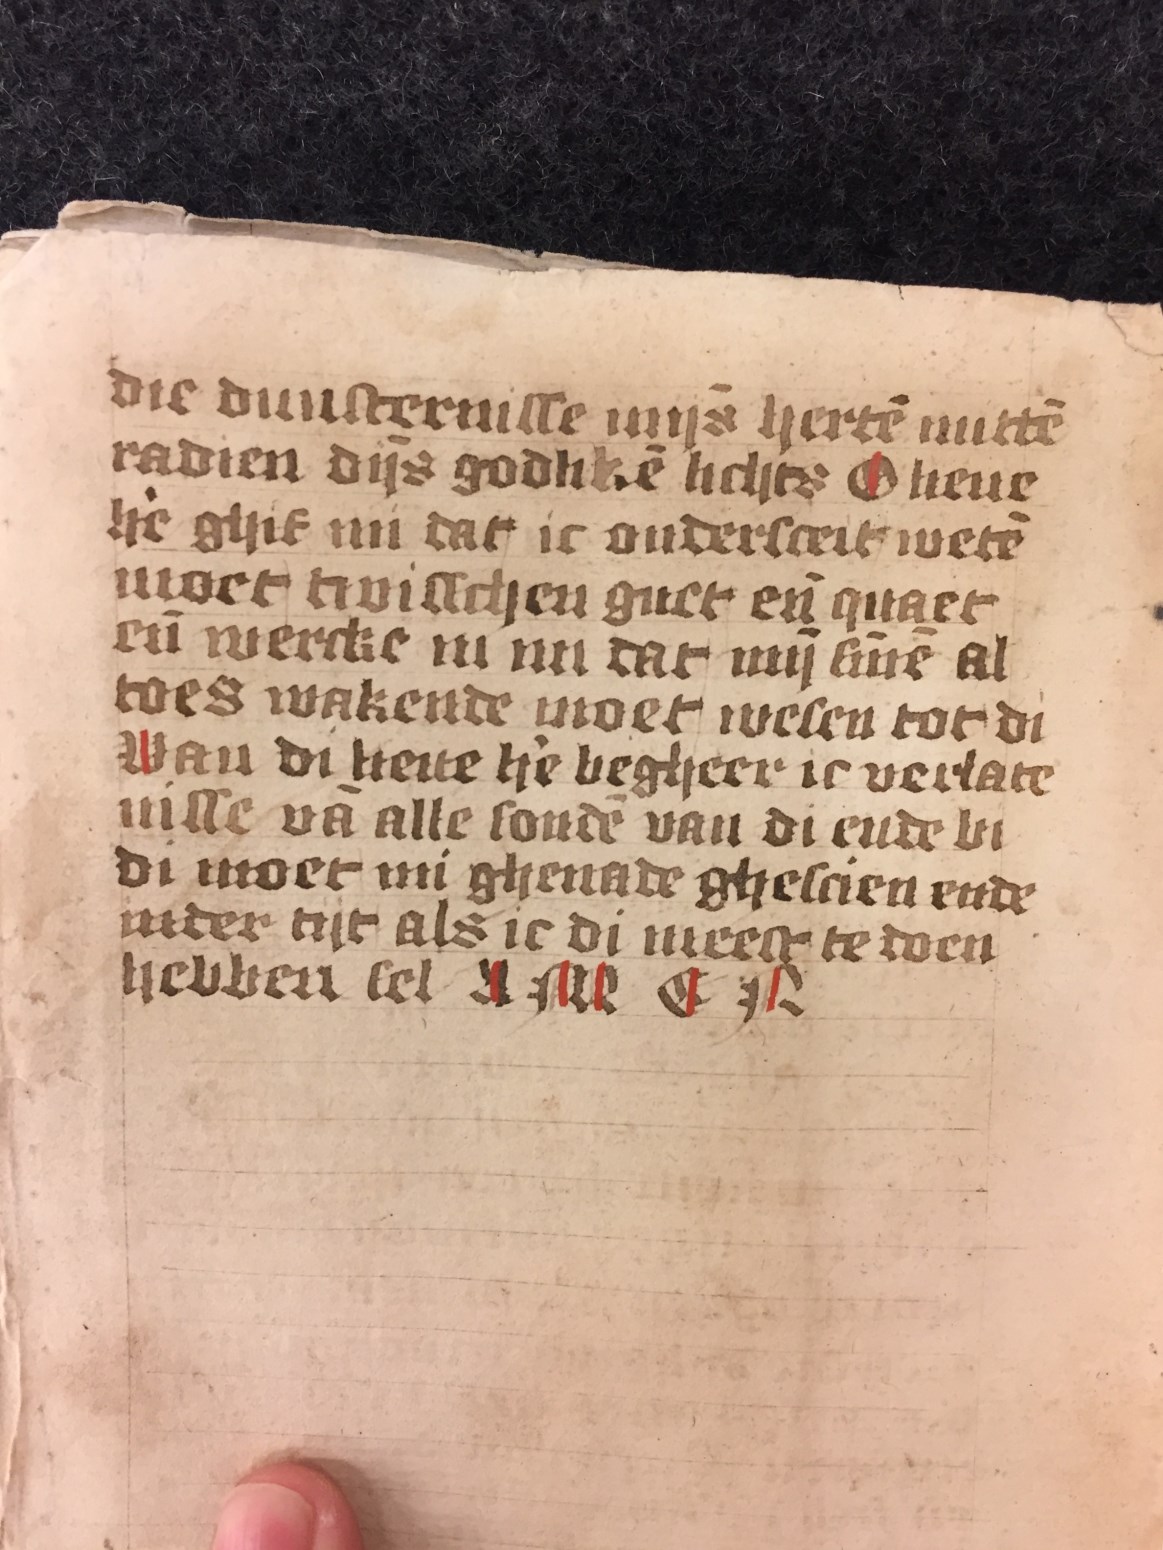 die duusternisse mijs̄ hertē mittē
radien dijs̄ godlikē lichts O lieue
hė ghif mi dat ic ondersceit wetē
moet twisschen guet en̄ quaet
en̄ wercke in mi dat mij̄ sin̄ē al
toes wakende moet wesen tot di
Wan di lieue hė begheer ic verlate
nisse vā alle sondē van di ende bi
di moet mi ghenade ghescien ende
inder tijt als ic di meest te doen
hebben sel A M E N